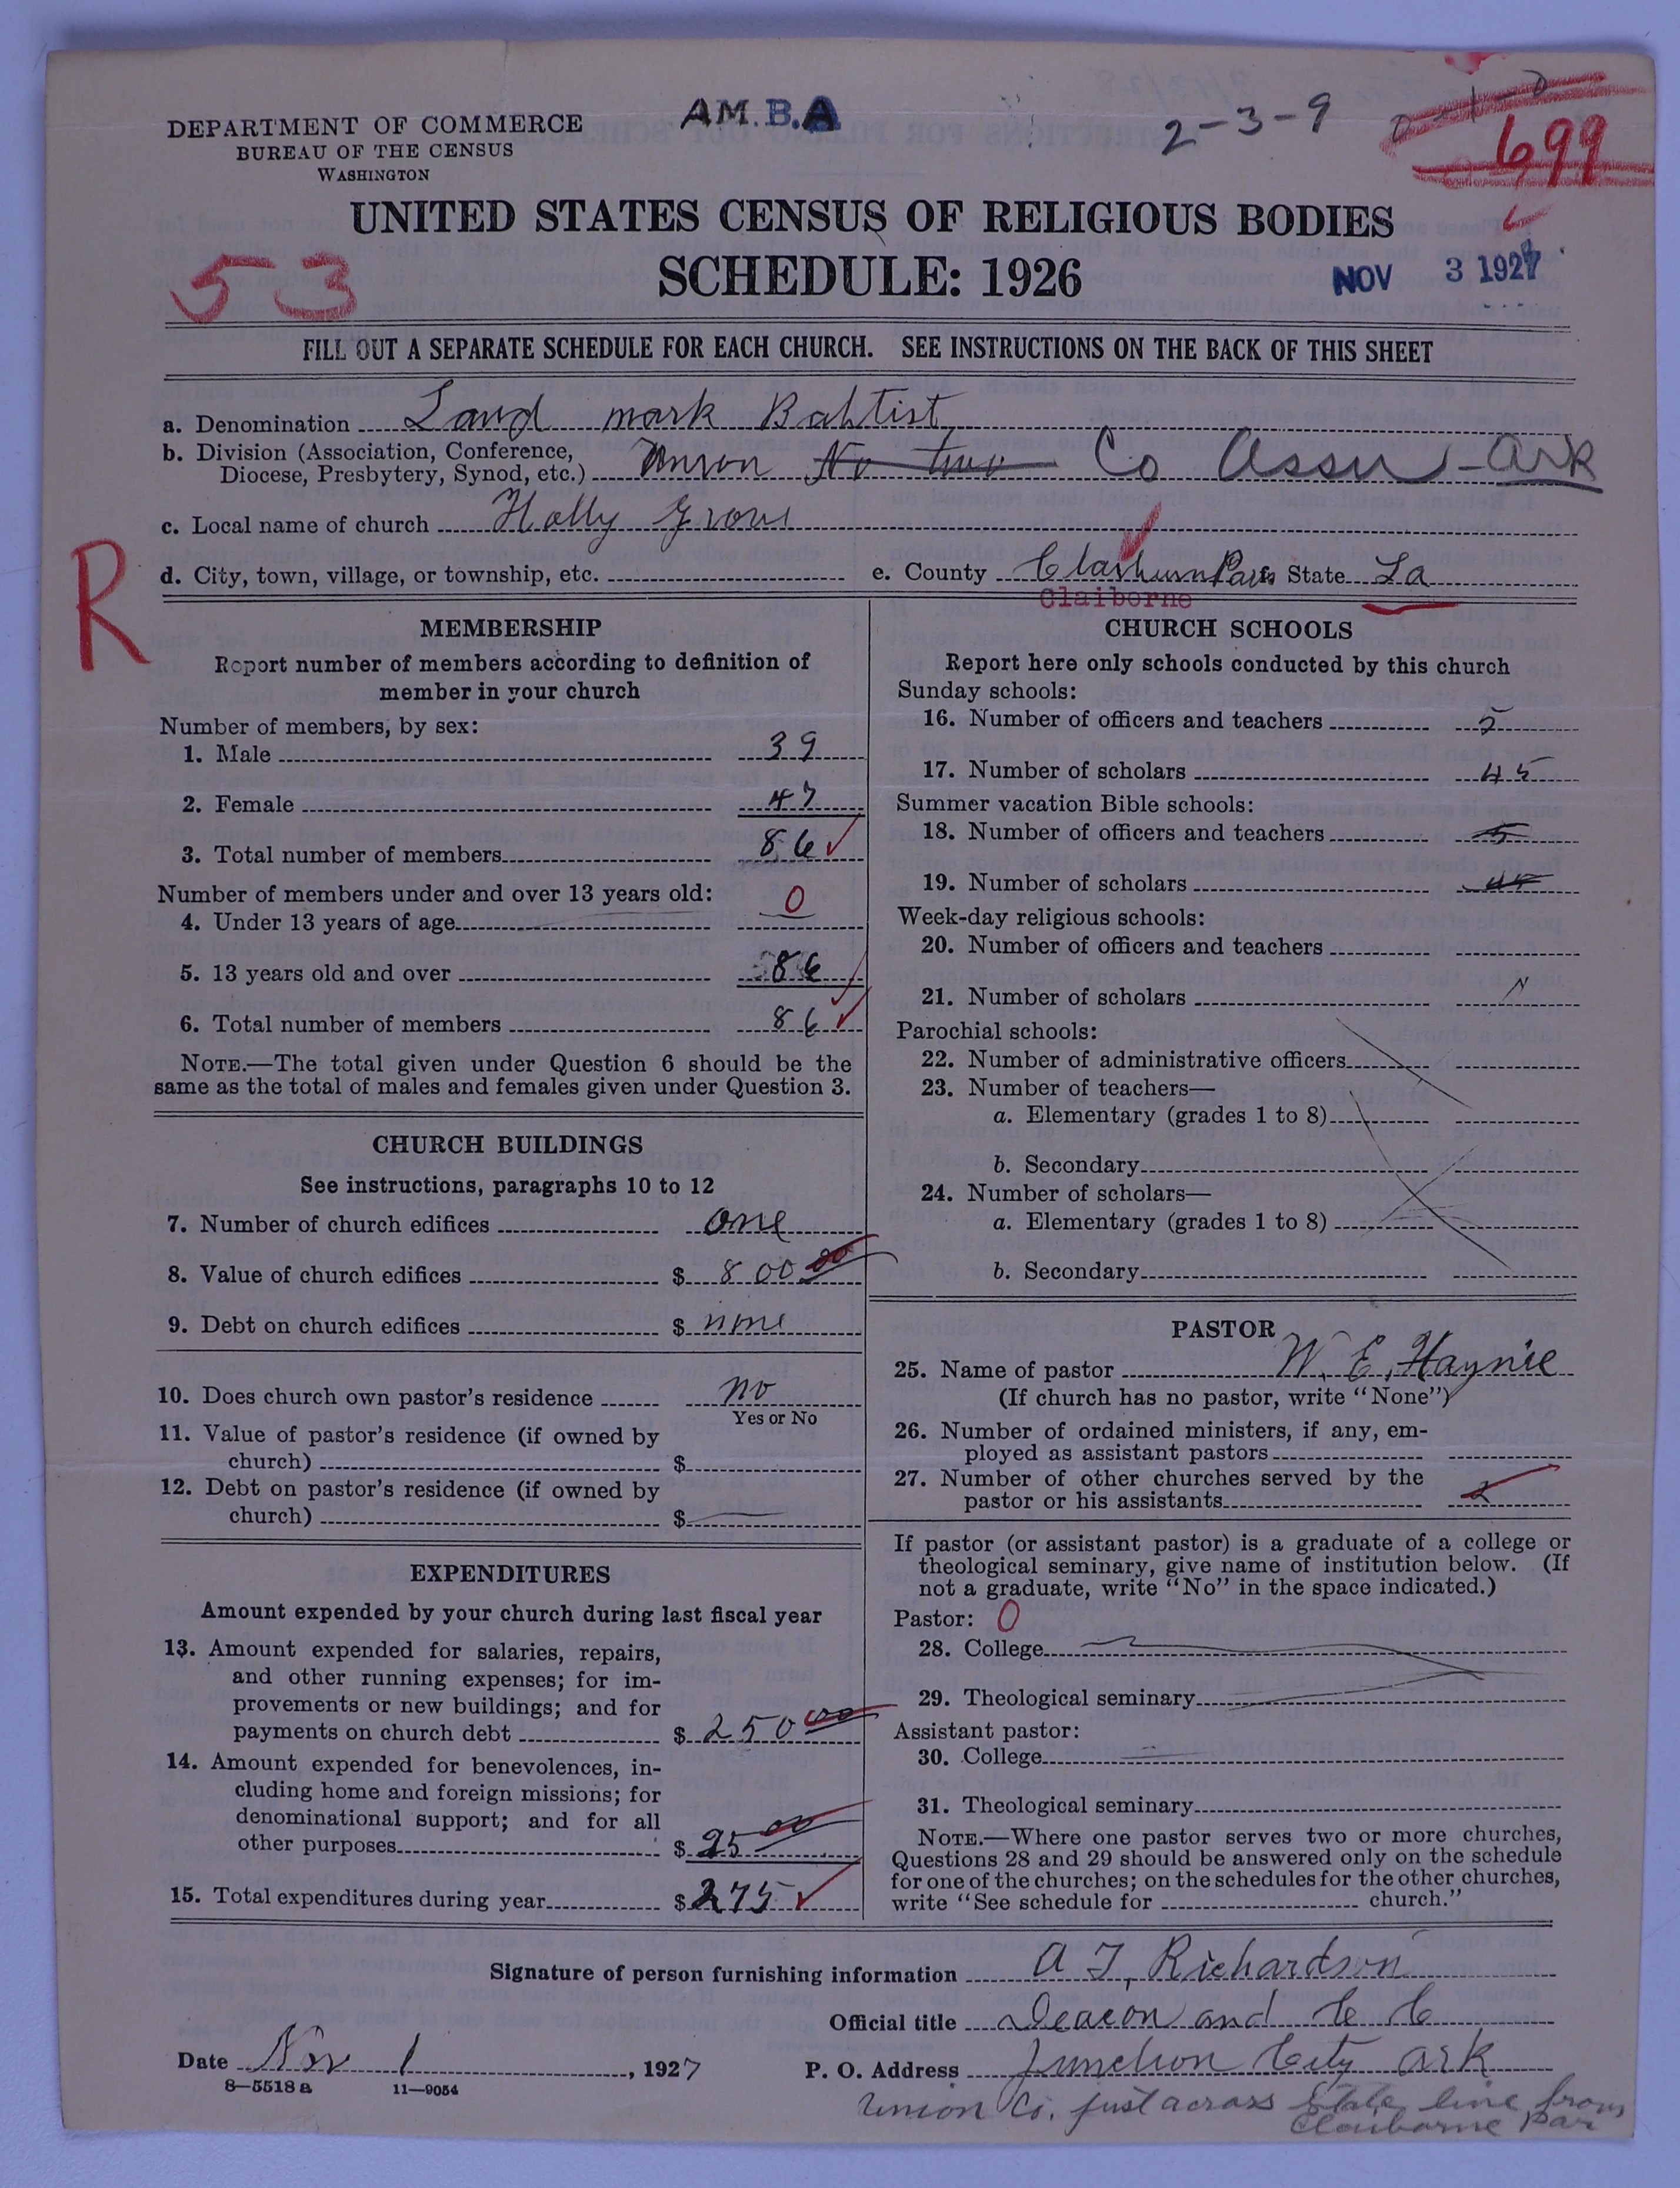 AM.B.A
2-3-9
699
DEPARTMENT OF COMMERCE
BUREAU OF THE CENSUS
WASHINGTON
UNITED STATES CENSUS OF RELIGIOUS BODIES
53
SCHEDULE: 1926
NOV 3 1927
FILL OUT A SEPARATE SCHEDULE FOR EACH CHURCH. SEE INSTRUCTIONS ON THE BACK OF THIS SHEET
a. Denomination Land mark Babtist
b. Division (Association, Conference,
Diocese, Presbytery, Synod, etc.) Union No two Co Assn - Ark
c. Local name of church Holly Grove
R
d. City, town, village, or township, etc. e. County Claihurn Paris State La
Claiborne
MEMBERSHIP
Report number of members according to definition of
member in your church
Number of members, by sex:
1. Male 39
2. Female 47
3. Total number of members 86
Number of members under and over 13 years old:
4. Under 13 years of age 0
5. 13 years old and over 86
6. Total number of members 86
NOTE.—The total given under Question 6 should be the
same as the total of males and females given under Question 3.
CHURCH BUILDINGS
See instructions, paragraphs 10 to 12
7. Number of church edifices one
8. Value of church edifices $ 800 00
9. Debt on church edifices $ none
10. Does church own pastor's residence no
Yes or No
11. Value of pastor's residence (if owned by
church) $
12. Debt on pastor's residence (if owned by
church) $
EXPENDITURES
Amount expended by your church during last fiscal year
13. Amount expended for salaries, repairs,
and other running expenses; for im-
provements or new buildings; and for
payments on church debt $ 250 00
14. Amount expended for benevolences, in-
cluding home and foreign missions; for
denominational support; and for all
other purposes $ 25 00
15. Total expenditures during year $ 275
CHURCH SCHOOLS
Report here only schools conducted by this church
Sunday schools:
16. Number of officers and teachers 5
17. Number of scholars 45
Summer vacation Bible schools:
18. Number of officers and teachers 5
19. Number of scholars 45
Week-day religious schools:
20. Number of officers and teachers
21. Number of scholars
Parochial schools:
22. Number of administrative officers
23. Number of teachers—
a. Elementary (grades 1 to 8)
b. Secondary
24. Number of scholars—
a. Elementary (grades 1 to 8)
b. Secondary
PASTOR
25. Name of pastor W. E. Haynie
(If church has no pastor, write "None")
26. Number of ordained ministers, if any, em-
ployed as assistant pastors
27. Number of other churches served by the
pastor or his assistants 2
If pastor (or assistant pastor) is a graduate of a college or
theological seminary, give name of institution below. (If
not a graduate, write "No" in the space indicated.)
Pastor: 0
28. College
29. Theological seminary
Assistant pastor:
30. College
31. Theological seminary
NOTE.—Where one pastor serves two or more churches,
Questions 28 and 29 should be answered only on the schedule
for one of the churches; on the schedules for the other churches,
write "See schedule for church."
Signature of person furnishing information A T. Richardson
Official title Deacon and C C
Date Nov 1, 1927 P. O. Address Junction City Ark
8—5518 a 11—9054
Union Co. just across State line from
Claiborne Par